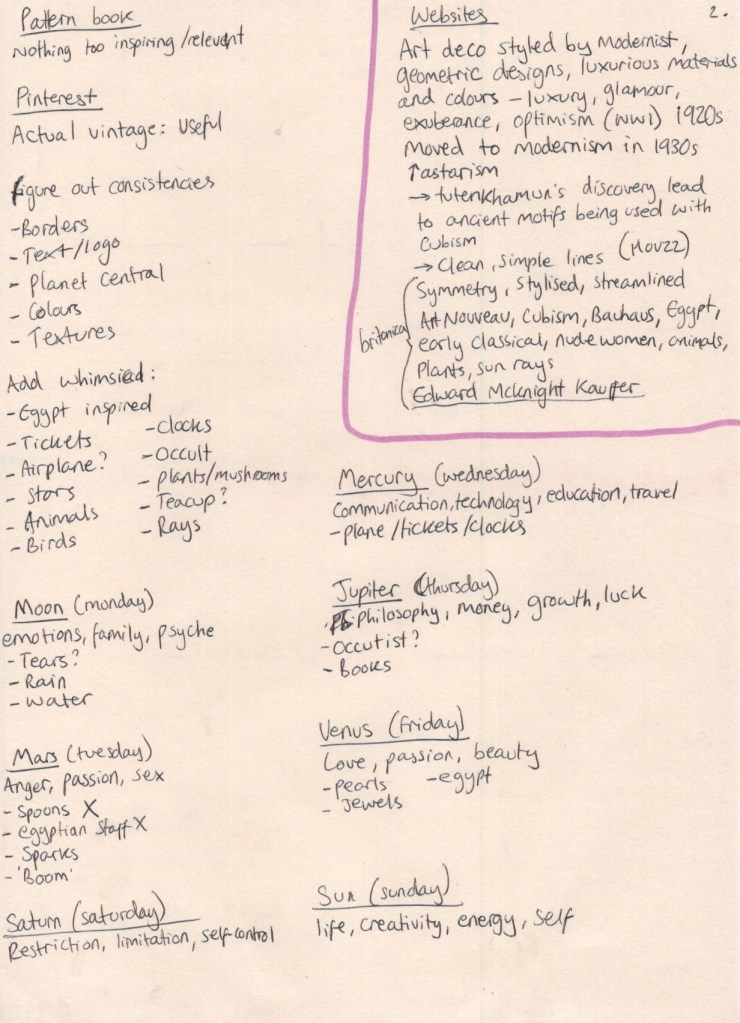 Pattern book
Nothing too inspiring/relevent
Pinterest
Actual vintage: Useful
Figure out consistencies
-Borders
-Text/logo
- Planet central
- Colours
- Textures
Add whimsical:
-Egypt inspired
-Tickets
-Airplane?
- Stars
- Animals
- Birds
-Clocks
-Occult
- Plants/mushrooms
- Teacup?
- Rays
Moon (monday)
emotions, family, psyche
- Tears?
- Rain
- Water
Mars (tuesday)
Anger, passion, sex
- Spoons X
- egyptian staff X
- Sparks
- 'Boom'
Saturn (saturday)
Restriction, limitation, self-control
2.
Websites
Art deco styled by Modernist,
geometric designs, luxurious materials
and colours - luxury, glamour,
exuberance, optimism (WW1) 1920s
Moved to modernism in 1930s
↑astarism
→ tutenkhamun's discovery lead
to ancient motifs being used with
Cubism
→ Clean, simple lines (Houzz)
britanica
Symmetry, stylised, streamlined
Art Nouveau, Cubism, Bauhaus, Egypt,
early classical, nude women, animals,
Plants, sun rays
Edward McKnight Kauffer
Mercury (wednesday)
Communication, technology, education, travel
-plane/tickets/clocks
Jupiter (thursday)
Philosophy, money, growth, luck
-Occutist?
- Books
Venus (friday)
Love, passion, beauty
-pearls
- Jewels
-egypt
Sun (sunday)
life, creativity, energy, self